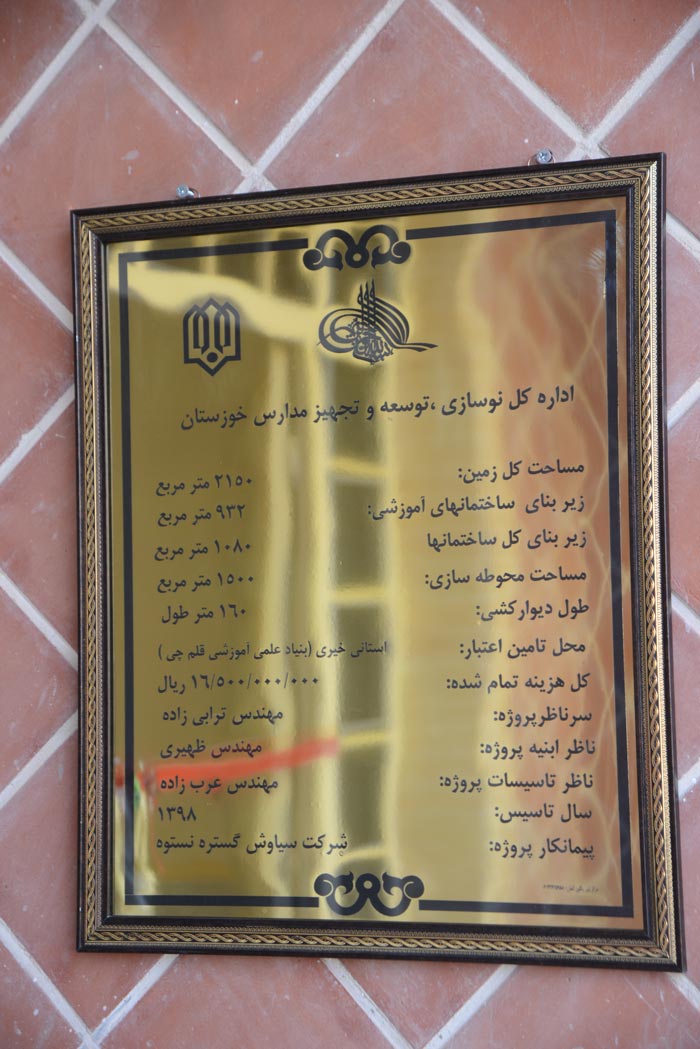 اداره کل نوسازی ،توسعه و تجهیز مدارس خوزستان
مساحت کل زمین: ۲۱۵۰ متر مربع
زیر بنای ساختمانهای آموزشی: ۹۳۲ متر مربع
زیر بنای کل ساختمانها ۱۰۸۰ متر مربع
مساحت محوطه سازی: ۱۵۰۰ متر مربع
طول دیوارکشی: ۱۶۰ متر طول
محل تامین اعتبار: استانی خیری (بنیاد علمی آموزشی قلم چی )
کل هزینه تمام شده: ۱۶/۵۰۰/۰۰۰/۰۰۰ ریال
سرناظرپروژه: مهندس ترابی زاده
ناظر ابنیه پروژه: مهندس ظهیری
ناظر تاسیسات پروژه: مهندس عرب زاده
سال تاسیس: ۱۳۹۸
پیمانکار پروژه: شرکت سیاوش گستره نستوه